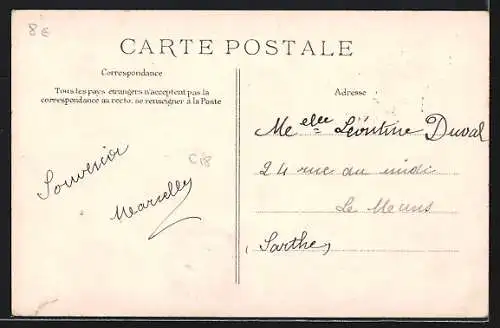 8€
CARTE POSTALE
Correspondance
Tous les pays étrangers n'acceptent pas la
correspondance au recto, se renseigner à la Poste
Souvenir
Marcelle
C18
Adresse
Melle Léontine Duval
24 rue du midi
Le Mans
Sarthe